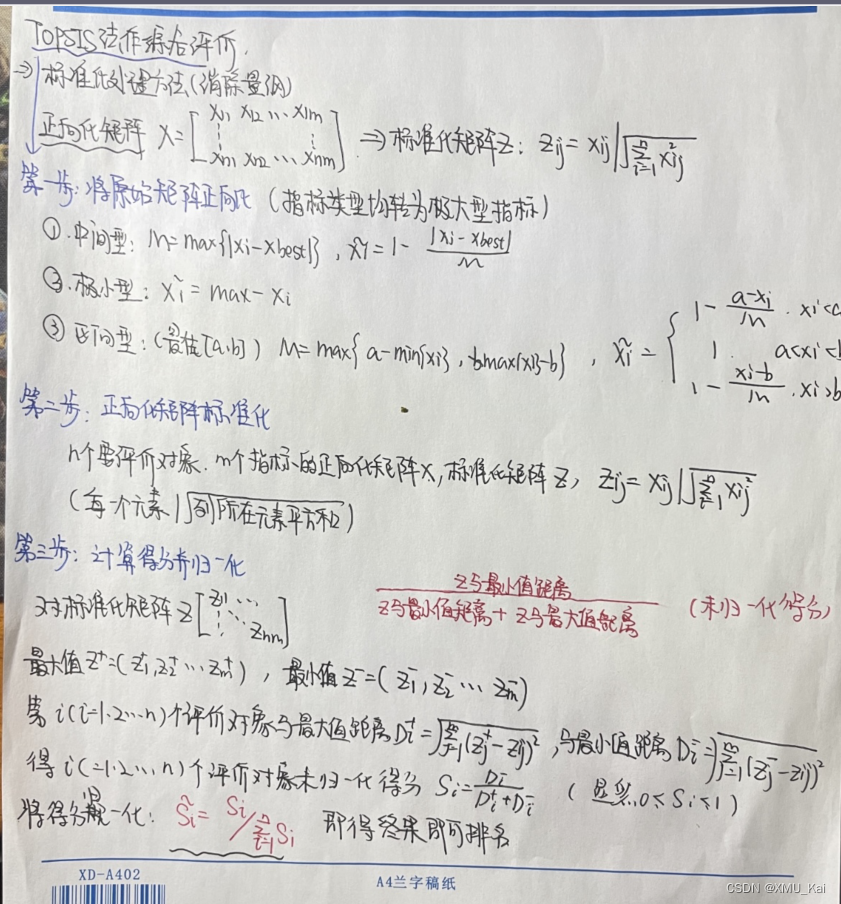 TOPSIS法作综合评价.
→ 标准化处理方法(消除量纲)
正向化矩阵 X=[x11 x12 … x1m ⋮ ⋮ xn1 xn2 … xnm] ⇒ 标准化矩阵Z: Zij = xij / √(∑_{i=1}^{n} x²ij)
第一步: 将原始矩阵正向化 (指标类型均转为极大型指标)
①.中间型: M=max{|xi-xbest|}, x̃i=1- |xi-xbest|/M
②.极小型: x̃i = max-xi
③ 区间型: (最佳[a,b]) M=max{a-min{xi}, max{xi}-b}, x̃i = { 1- (a-xi)/M . xi<a
1. a<xi<b
1- (xi-b)/M . xi>b
第二步: 正向化矩阵标准化
n个要评价对象. m个指标的正向化矩阵X, 标准化矩阵Z, Zij = xij / √(∑_{i=1}^{n} xij²)
(每一个元素 / √列所在元素平方和)
第三步: 计算得分并归一化
Z与最小值距离
Z与最小值距离 + Z与最大值距离 (未归一化得分)
对标准化矩阵Z [z11 … ⋮ ⋱ znm]
最大值Z⁺=(z1⁺, z2⁺ … zm⁺), 最小值Z⁻=(z1⁻, z2⁻ … zm⁻)
第i(i=1.2…n)个评价对象与最大值距离Di⁺=√(∑_{j=1}^{m}(Zj⁺-Zij)²), 与最小值距离Di⁻=√(∑_{j=1}^{m}(Zj⁻-Zij)²)
得i(=1.2…n)个评价对象未归一化得分 Si= Di⁻/(Di⁺+Di⁻) (显然.0≤Si≤1)
将得分归一化: S̃i= Si/∑_{i=1}^{n}Si 即得结果即可排名
XD-A402
A4兰字稿纸
CSDN @XMU_Kai